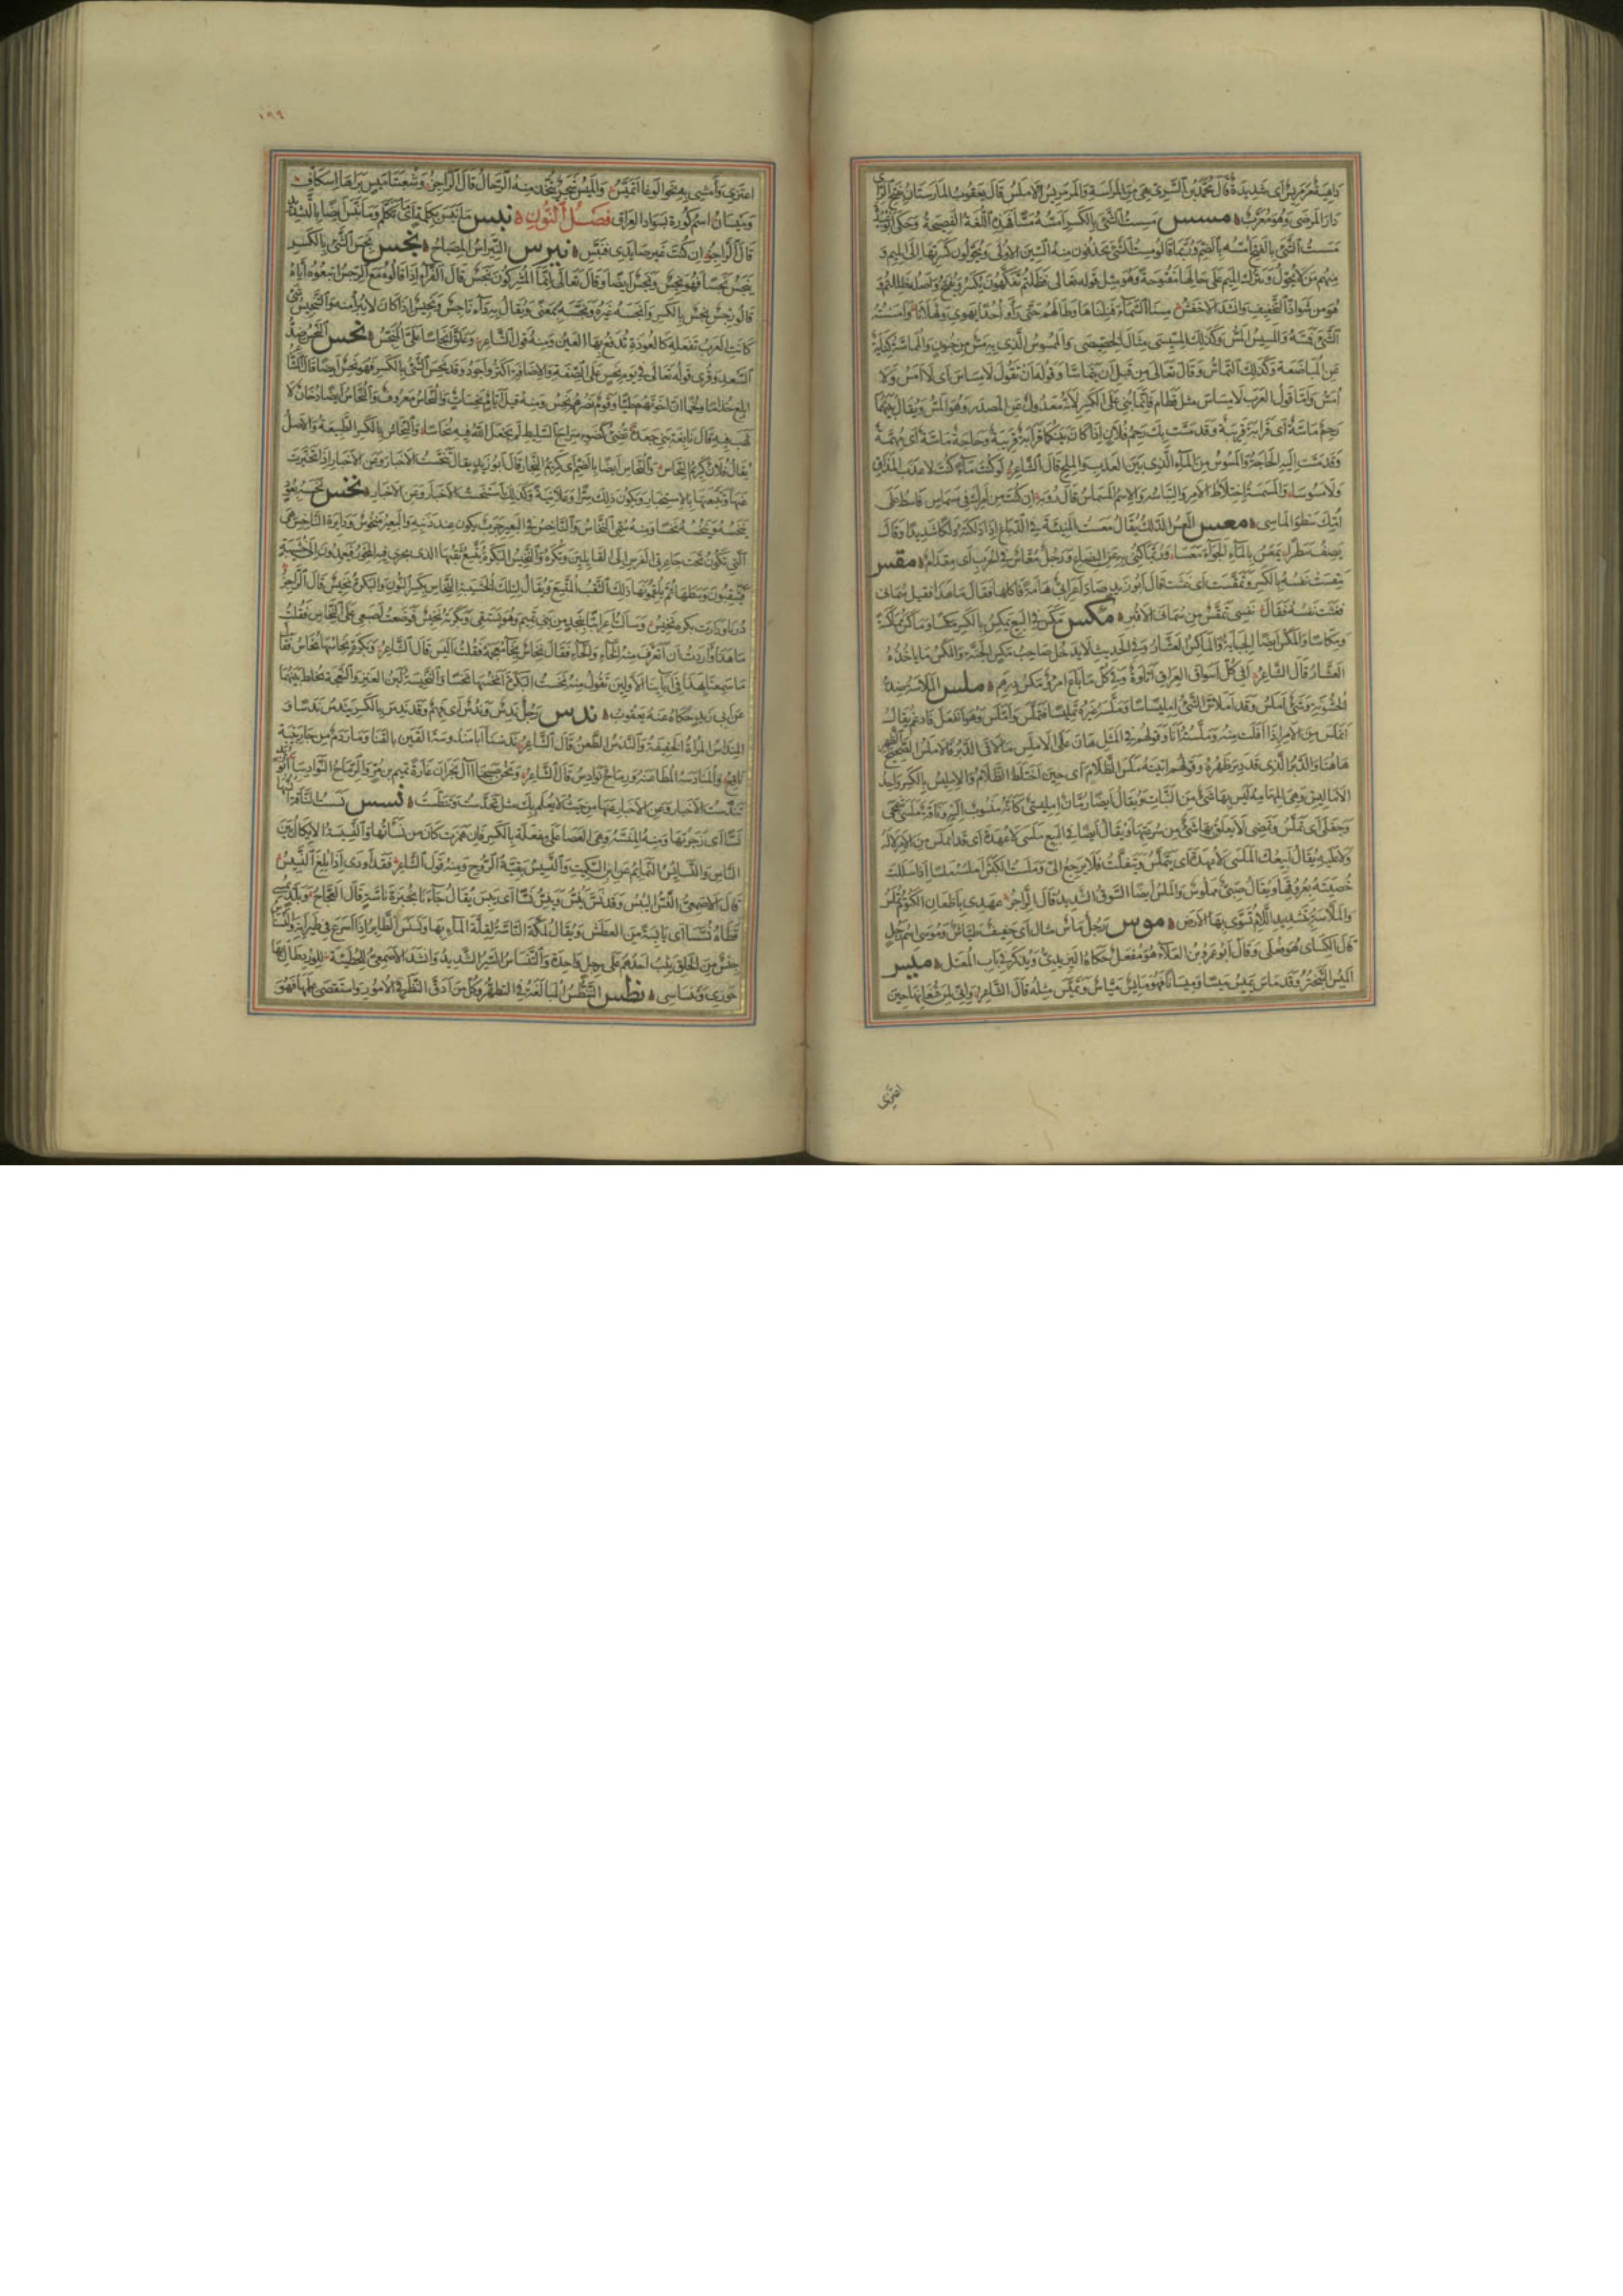 داهية مرمريس أى شديدة قال محمد بن السرى هى من المراسة والمرمريس الاملس قال يعقوب المارستان بفتح الراء
دار المرضى وهو معرب مسس مسست الشئ بالكسر امسه مسا فهذه اللغة الفصيحة وحكى ابو عبيدة
مسست الشئ بالفتح امسه بالضم وربما قالوا مست الشئ يحذفون منه السين الاولى ويحولون كسرتها الى الميم و
منهم من لا يحول ويترك الميم على حالها مفتوحة وهو مثل قوله تعالى فظلتم تفكهون يكسر ويفتح واصله ظللتم و
هو من شواذ التخفيف وانشد الاخفش مسنا السماء فنلناها وطالهم حتى رأوا احدا يهوى وثهلانا وامسسته
الشئ فمسه والمسيس المس وكذلك المسيسى مثال الخصيصى والممسوس الذى به مس من جنون والمماسة كناية
عن المباضعة وكذلك التماس وقال تعالى من قبل ان يتماسا وقولهم لا مساس اى لا امس ولا
امس واما قول العرب لا مساس مثل قطام فانما بنى على الكسر لانه معدول عن المصدر وهو المس ويقال بينهما
رحم ماسة اى قرابة قريبة وقد مست بك رحم فلان اذا كان بينكما قرابة قريبة وحاجة ماسة اى مهمة
وقد مست اليه الحاجة والمسوس من الماء الذى بين العذب والملح قال الشاعر لو كنت ماء كنت لا عذب المذاق
ولا مسوسا والمسمسة اختلاط الامر والتباسه والاسم المسماس قال رؤبة ان كنت من امرك فى مسماس فاسط على
امك سطو الماسى معس المعس الدلك يقال معست المنيئة فى الدباغ اذا دلكته دلكا شديدا وقال
يصف مطرا يمعس بالماء الجواء معسا وربما كنى به عن البضاع ورجل معاس فى الحرب اى مقدام مقس
مقست نفسه بالكسر وتمقست اى غثت قال ابو زيد صاد اعرابى هامة فاكلها فقال ما هذا فقيل سمانى
فغثت نفسه فقال نفسى تمقس من سمانى الاقبر مكس مكس فى البيع يمكس بالكسر مكسا وماكس مماكسة
ومكاسا والمكس ايضا الجباية والماكس العشار وفى الحديث لا يدخل صاحب مكس الجنة والمكس ما ياخذه
العشار قال الشاعر أفى كل اسواق العراق اتاوة وفى كل ما باع امرؤ مكس درهم ملس الملاسة ضد
الخشونة وشئ املس وقد املاس الشئ امليساسا وملسه غيره تمليسا فتملس واملس وهو انفعل فادغم يقال
انملس من الامر اذا افلت منه وملسته انا وقولهم فى المثل هان على الاملس ما لاقى الدبر فالاملس الصحيح الظهر
هاهنا والدبر الذى قد دبر ظهره وقولهم اتيته ملس الظلام اى حين اختلط الظلام والامليس بالكسر واحد
الاماليس وهى المهامه ليس بها شئ من النبات ويقال ايضا رمان امليسى كانه منسوب اليه وناقة ملسى
اى تملس وتمضى لا يعلق بها شئ من سرعتها ويقال ايضا فى البيع ملسى لا عهدة اى قد انملس من الامر لا له
ولا عليه يقال ابيعك الملسى لا عهدة اى تتملس وتتفلت فلا ترجع الى وملست الكبش املسه ملسا اذا سللت
خصيتيه بعروقهما ويقال صبى مملوس والملس ايضا السوق الشديد قال الراجز عهدى باظعان الكتوم تملس
والملاسة بتشديد اللام تسوى بها الارض موس رجل ماس مثال مال اى خفيف طياش وموسى اسم رجل
قال الكسائى هو فعلى وقال ابو عمرو بن العلاء هو مفعل حكاه اليزيدى ويذكر فى باب المعتل ميس
الميس التبختر وقد ماس يميس ميسا وميسانا فهو مايس مياس وتميس مثله قال الشاعر وانى لمن قنعانها حين
اعتزى
١٩٩
اعتزى وأمشى بها نحو الوغا اتميس والميس شجر تتخذ منه الرحال قال الراجز وشعبتا ميس براها اسكاف
وميسان اسم كورة بسواد العراق فصل النون نبس ما نبس بكلمة اى ما تكلم وما نبس ايضا بالتشديد
قال الراجز ان كنت غير صايدى فنبس نبرس النبراس المصباح نجس نجس الشئ بالكسر
ينجس نجسا فهو نجس ونجس ايضا وقال تعالى انما المشركون نجس قال الفراء اذا قالوه مع الرجس اتبعوه اياه
قالوا رجس نجس بالكسر وانجسه غيره ونجسه بمعنى ويقال به داء ناجس ونجيس اذا كان لا يبرأ منه والتنجيس شئ
كانت العرب تفعله كالعوذة تدفع بها العين ومنه قول الشاعر وعلق انجاسا على المنجس نحس النحس ضد
السعد وقرئ قوله تعالى فى يوم نحس على الصفة والاضافة اكثر واجود وقد نحس الشئ بالكسر فهو نحس ايضا قال الشاعر
ابلغ جذاما ولخما ان اخوتهم طيا وقوم نصرهم نحس ومنه قيل ايام نحسات والنحاس معروف والنحاس ايضا دخان لا
لهب فيه قال نابغة بنى جعدة تضئ كضوء سراج السليط لم يجعل الله فيه نحاسا والنحاس بالكسر الطبيعة والاصل
يقال فلان كريم النحاس والنحاس ايضا بالضم اى كريم النجار قال ابو زيد يقال تنحست الاخبار وعن الاخبار اذا تخبرت
عنها وتتبعتها بالاستخبار ويكون ذلك سرا وعلانية وكذلك استنحست الاخبار وعن الاخبار نخس نخسه بعود
ينخسه وينخسه نخسا ومنه سمى النخاس والناخس فى البعير جرب يكون عند ذنبه والبعير منخوس ودايرة الناخس هى
التى تكون تحت جاعرتى الفرس الى الفايلين وتكره والنخيس البكرة يتسع ثقبها الذى يجرى فيه المحور فيعمدون الى خشيبة
فيثقبون وسطها ثم يلقمونها ذلك الثقب المتسع ويقال لتلك الخشيبة النخاس بكسر النون والبكرة نخيس قال الراجز
درنا ودارت بكرة نخيس وسالت اعرابيا بنجد من بنى تميم وهو يستقى وبكرته نخيس فوضعت اصبعى على النخاس فقلت
ما هذا واردت ان اتعرف منه الخاء والحاء فقال نخاس بخاء معجمة فقلت اليس قال الشاعر وبكرة نحاسها نحاس فقال
ما سمعنا بهذا فى ابائنا الاولين تقول منه نخست البكرة انخسها نخسا والنخيسة لبن العنز والنعجة يخلط بينهما
عن ابى زيد حكاه عنه يعقوب ندس رجل ندس وندس اى فهم وقد ندس بالكسر يندس ندسا و
المنداس المرأة الخفيفة والندس الطعن قال الشاعر ندسنا ابا مندوسة القين بالقنا وما ردم من جار بيبة
ناقع والمنادسة المطاعنة ورماح نوادس قال الشاعر ونحن صبحنا آل نجران غارة تميم بن مر والرماح النوادسا ابو زيد
تندست الاخبار وعن الاخبار اذا تخبرت عنها من حيث لا يعلم بك مثل تحدست وتنطست نسس نسست الناقة انسها
نسا اى زجرتها ومنه المنسة وهى العصا على مفعلة بالكسر فان همزت كان من نسأتها والنسيسة الايكال بين
الناس والنسايس النمايم عن ابن السكيت والنسيس بقية الروح ومنه قول الشاعر فقد أودى اذا بلغ النسيس
قال الاصمعى النس اليبس وقد نس ينس وينس نسا اى يبس يقال جاءنا بخبزة ناسة قال العجاج وبلد تمسى
قطاه نسسا اى يابسة من العطش ويقال لمكة الناسة لقلة الماء بها ونسنس الطاير اذا اسرع فى طيرانه والنسناس
جنس من الخلق يثب احدهم على رجل واحدة والتنساس السير الشديد وانشد الاصمعى للحطيئة للورد طال بها
حوزى وتنساسى نطس التنطس المبالغة فى التطهر وكل من ادق النظر فى الامور واستقصى علمها فهو